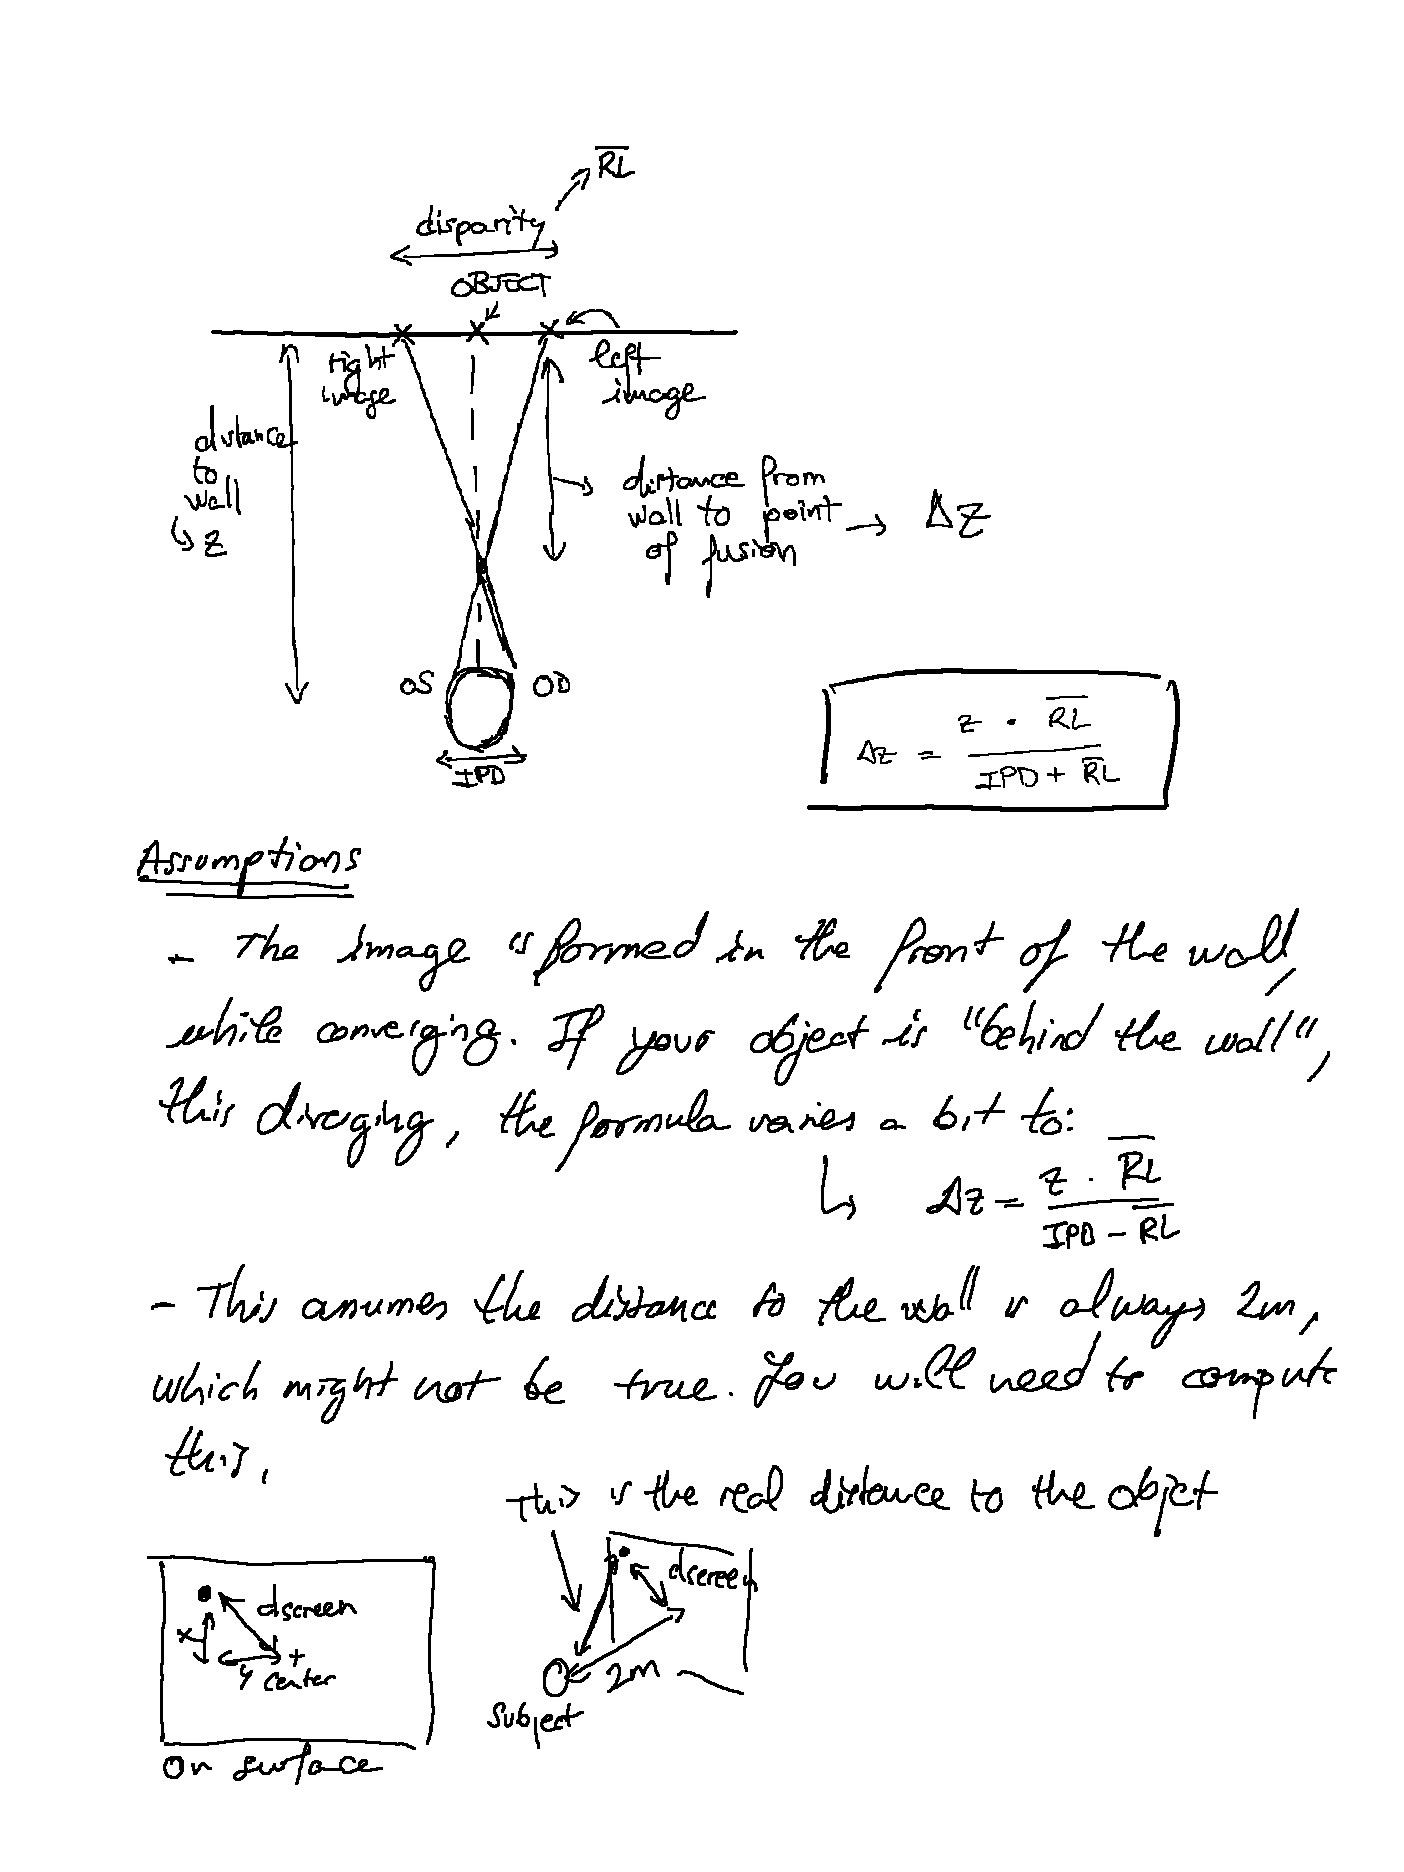 RL
disparity
OBJECT
right
image
left
image
distance
to
wall
↳ z
distance from
wall to point → Δz
of fusion
OS
OD
IPD
Δz = z · RL / IPD + RL
Assumptions
- The image is formed in the front of the wall,
while converging. If your object is "behind the wall",
this diverging, the formula varies a bit to:
↳ Δz = z · RL / IPD - RL
- This assumes the distance to the wall is always 2m,
which might not be true. You will need to compute
this.
This is the real distance to the object
dscreen
x
+
y center
On surface
dscreen
2m
Subject